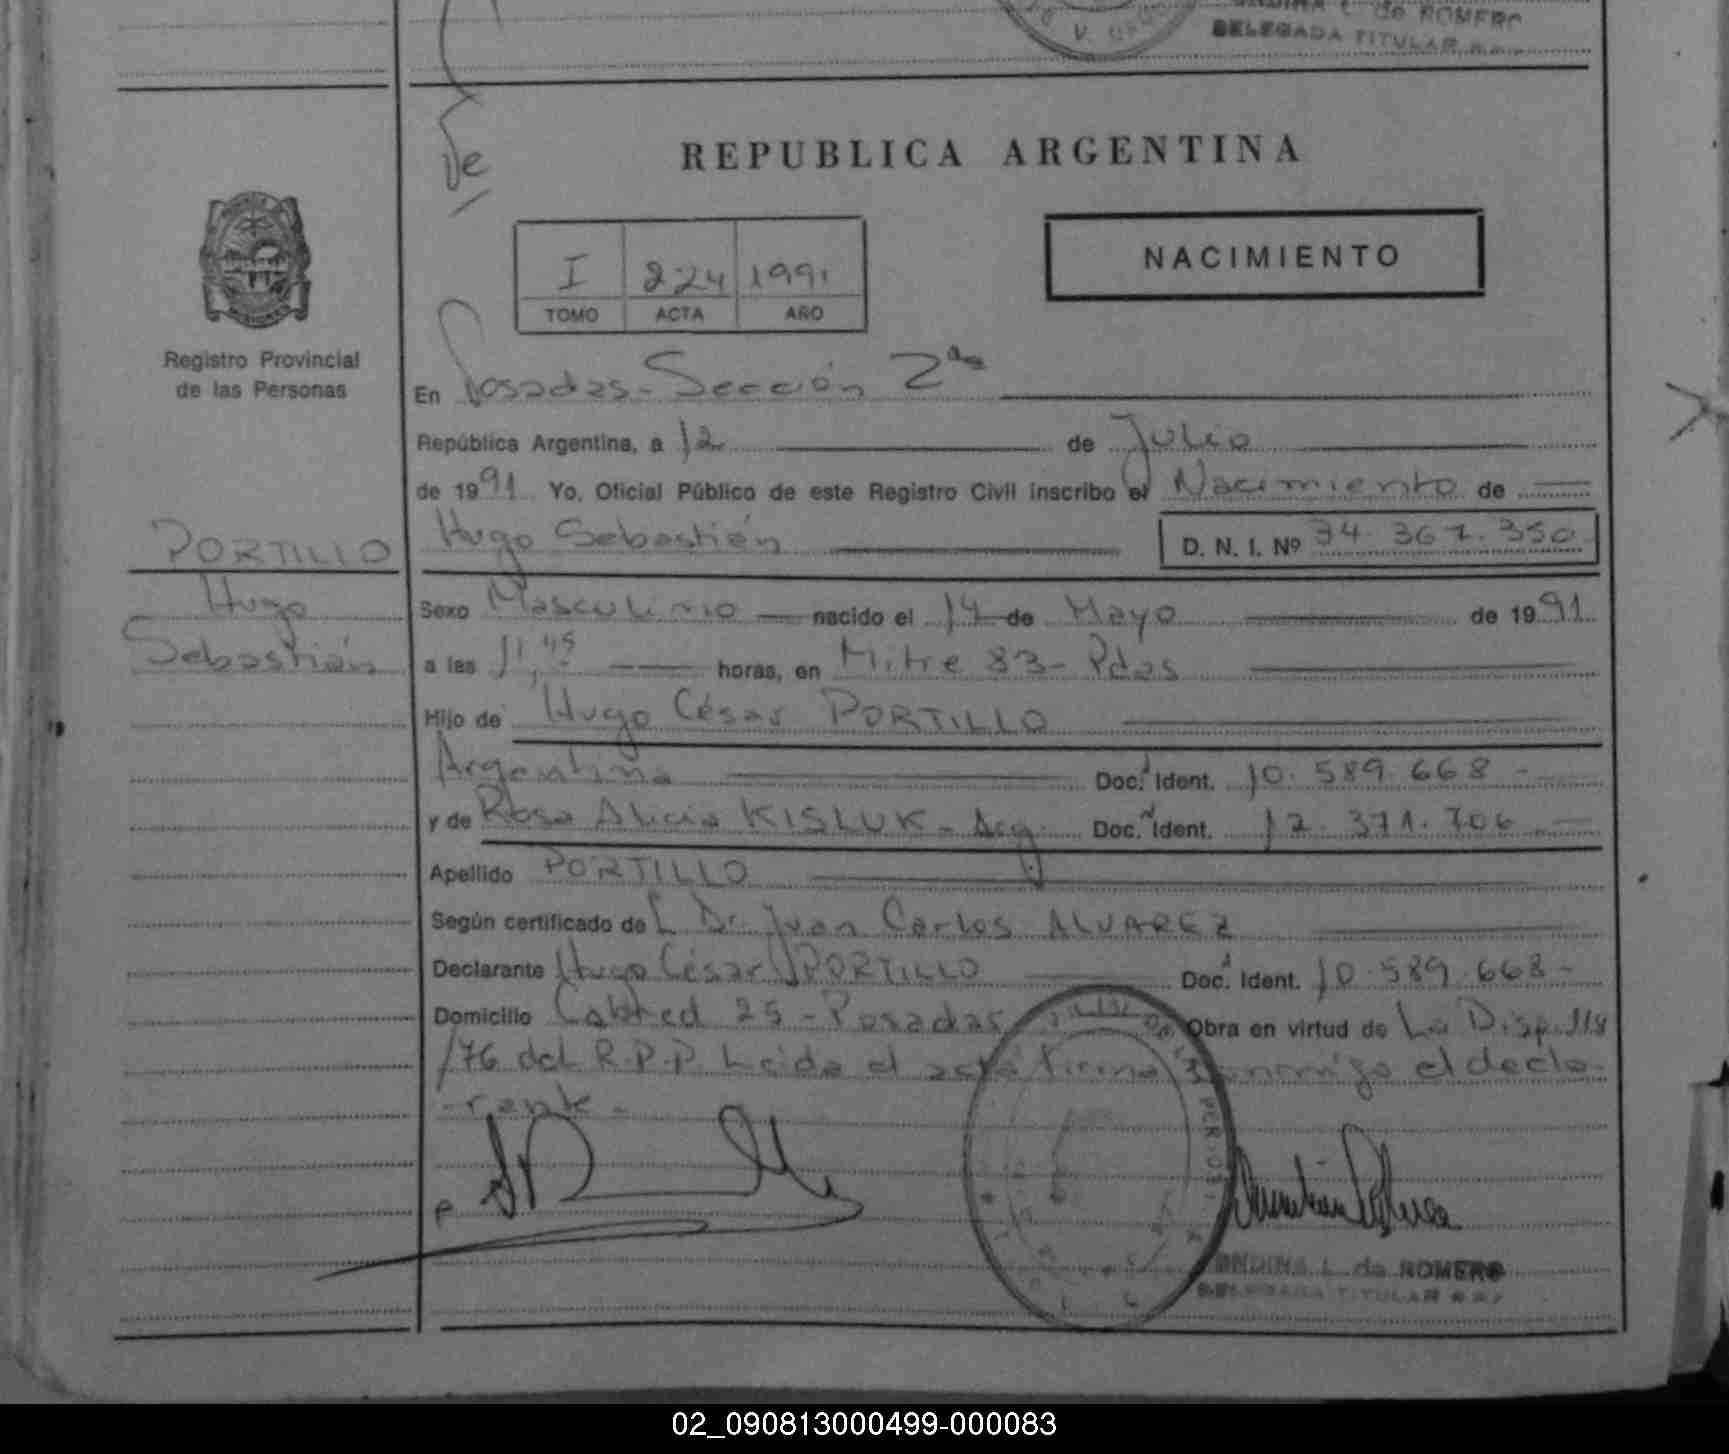 ONDINA L. de ROMERO
DELEGADA TITULAR
REPUBLICA ARGENTINA
NACIMIENTO
I 224 1991
TOMO ACTA AÑO
Registro Provincial
de las Personas
En Posadas - Sección 2ª
República Argentina, a 12 de Julio
de 1991 Yo, Oficial Público de este Registro Civil inscribo el Nacimiento de
PORTILLO
Hugo
Sebastián
Hugo Sebastián D. N. I. Nº 34.367.350
Sexo Masculino nacido el 14 de Mayo de 1991
a las 11,45 horas, en Mitre 83 - Pdas
Hijo de Hugo César PORTILLO
Argentina Doc. Ident. 10.589.668 -
y de Rosa Alicia KISLUK - Arg. Doc. Ident. 12.371.706
Apellido PORTILLO
Según certificado de L Dr. Juan Carlos ALVAREZ
Declarante Hugo César PORTILLO Doc. Ident. 10.589.668 -
Domicilio Cabred 25 - Posadas Obra en virtud de La Disp.
/76 del R.P.P. Leida el acta firma conmigo el decla-
-rante -
ONDINA L. de ROMERO
DELEGADA TITULAR
02_090813000499-000083